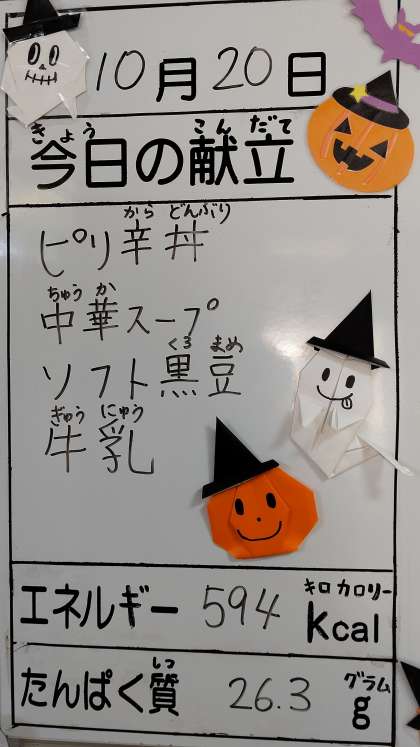 10月20日
きょう こんだて
今日の献立
から どんぶり
ピリ辛丼
ちゅう か
中華スープ
くろ まめ
ソフト黒豆
ぎゅう にゅう
牛乳
キロ カロリー
エネルギー 594 kcal
しつ グラム
たんぱく質 26.3 g